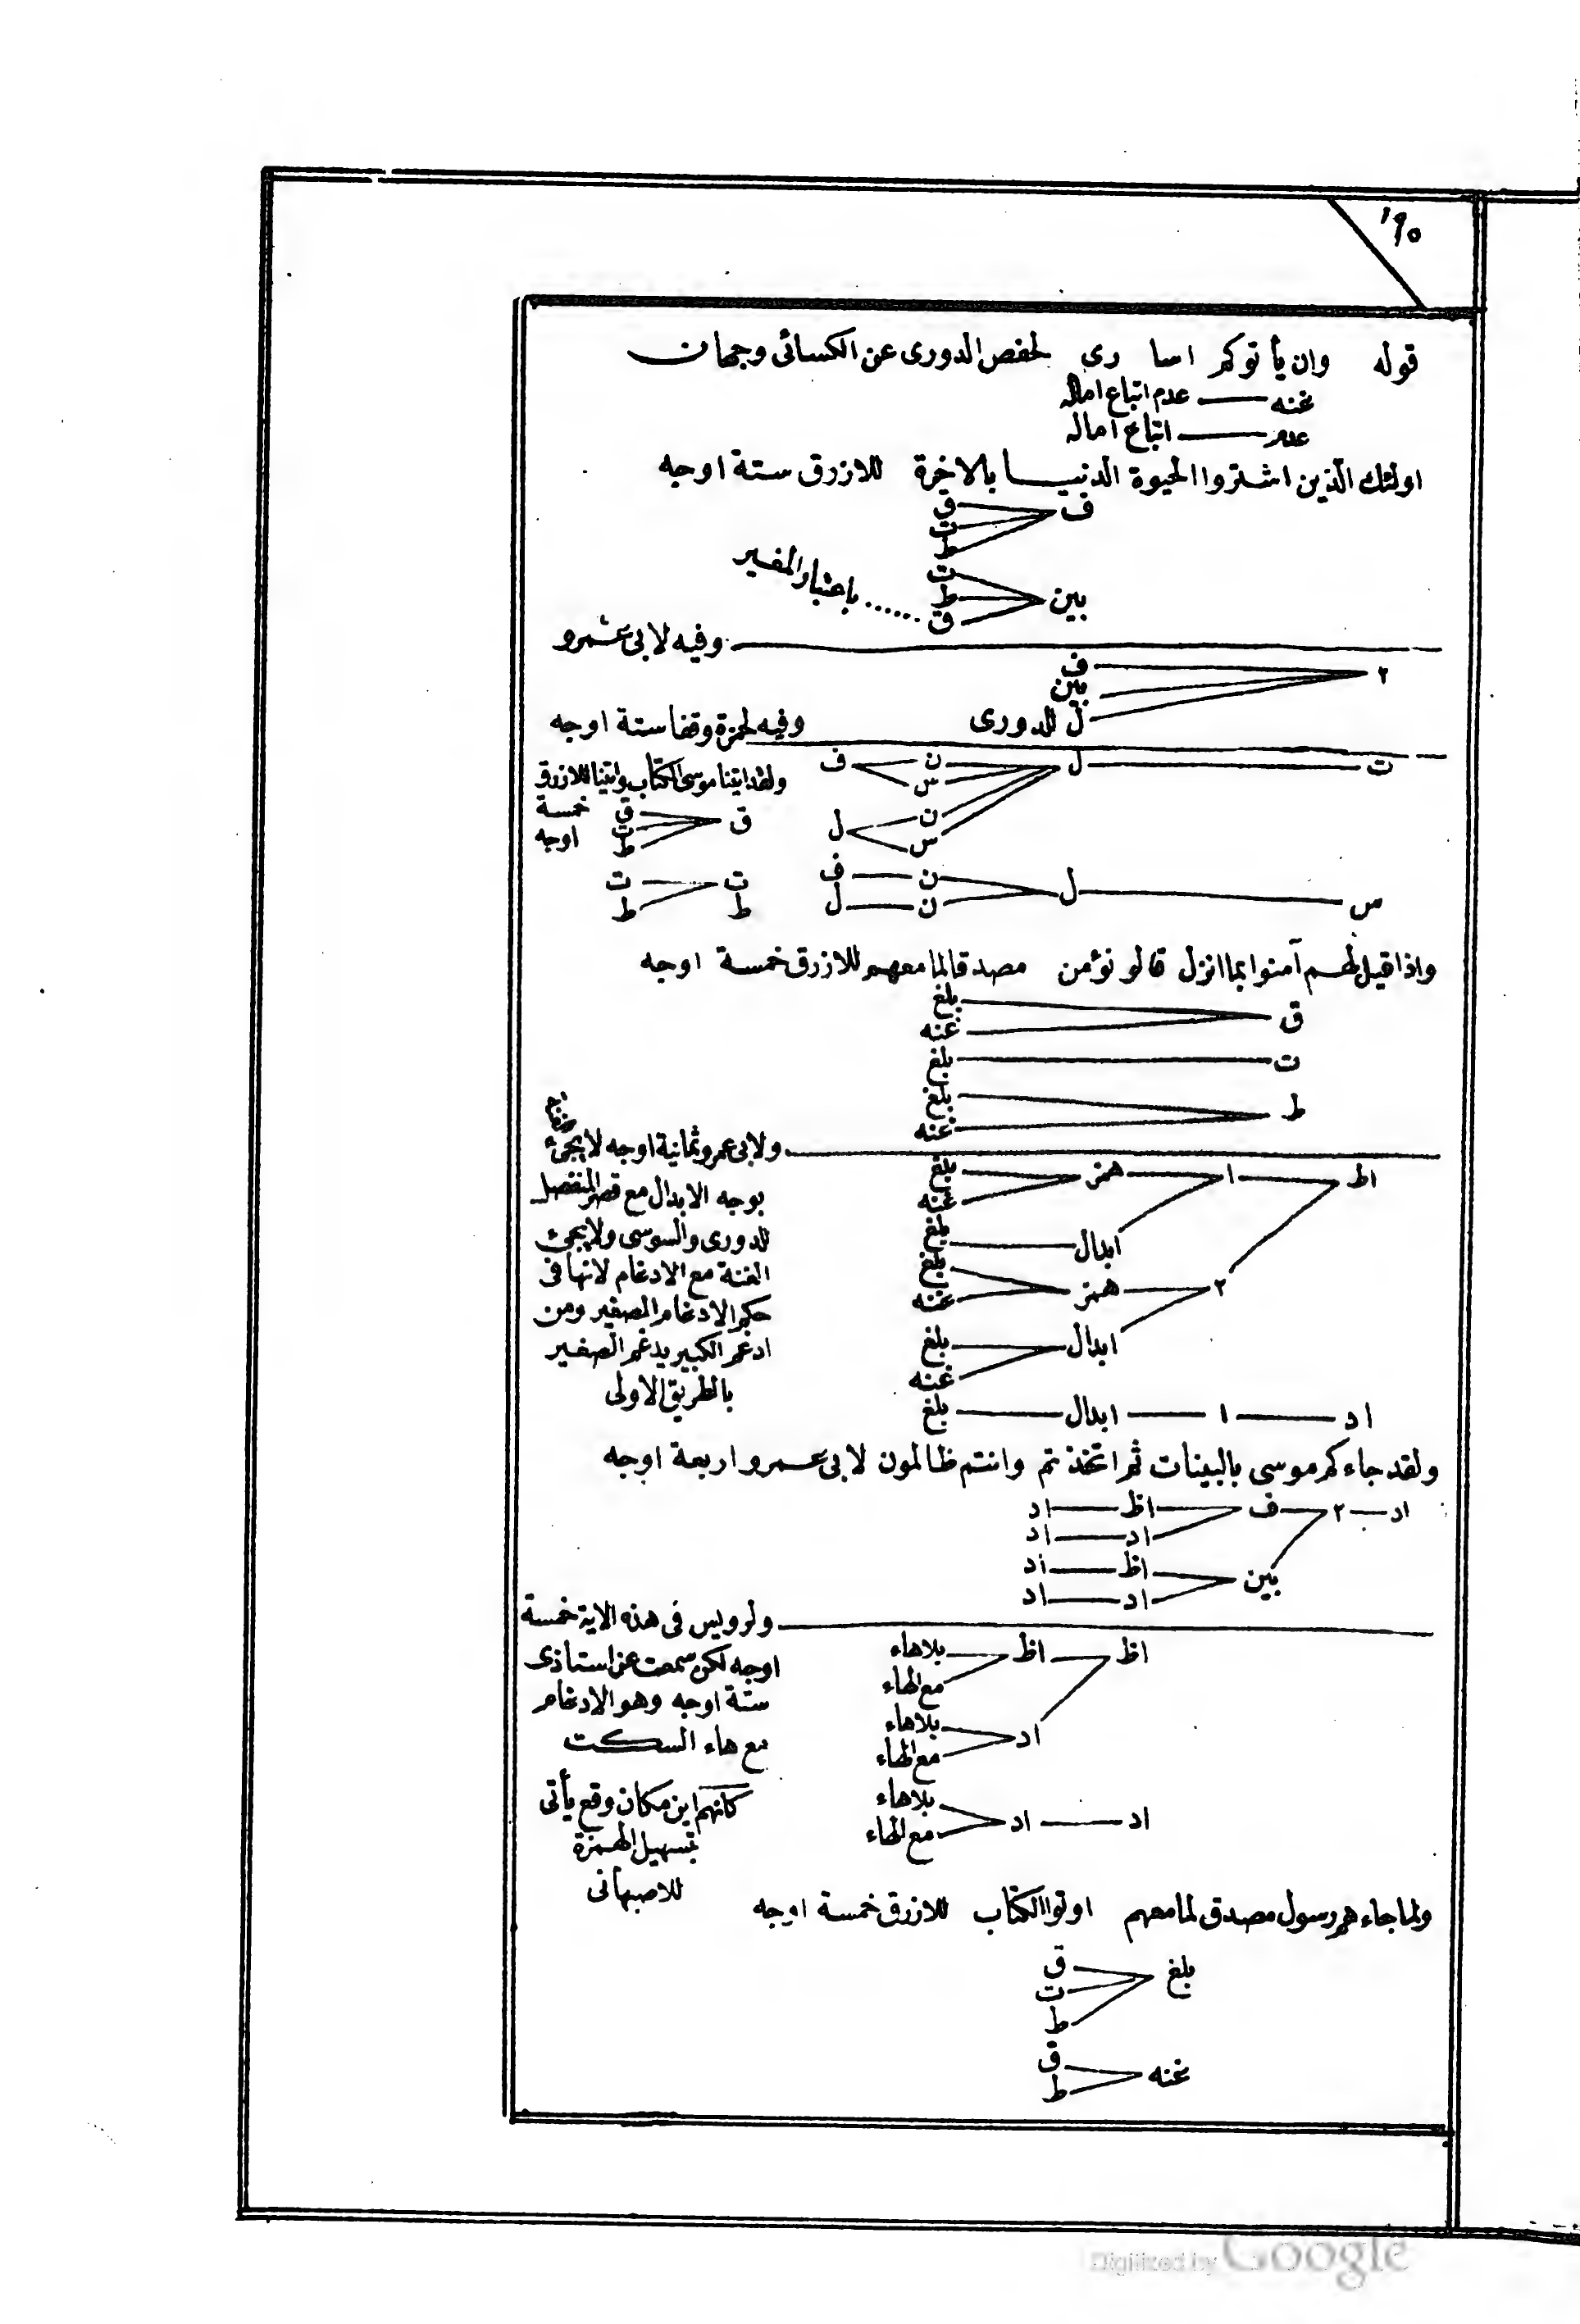 ١٩٠
قوله وان يأتوكم اسارى لحفص الدورى عن الكسائى وجهان
غنه عدم اتباع اماله
عدم اتباع اماله
اولئك الذين اشتروا الحيوة الدنيا بالاخرة للازرق ستة اوجه
ف ق
ت
ط
بين ت
ط
ق باعتبار المفسر
وفيه لابى عمرو
٢ ف
بين
ل للدورى
وفيه لحمزة وقفا ستة اوجه
ت ل ن ف
س
ن ل
س
س ل ن ف
ن ل
ولقد اتينا موسى الكتاب واتينا للازرق
خمسة
اوجه
ق ق
ت
ط
ت ت
ط ط
واذا قيل لهم آمنوا بما انزل قالو نؤمن مصدقا لما معهم للازرق خمسة اوجه
ق بلغ
غنه
ت بلغ
ط بلغ
غنه
ولابى عمرو ثمانية اوجه لا يجئ
بوجه الابدال مع قصر المنفصل
للدورى والسوسى ولا يجئ
الغنة مع الادغام لانها فى
حكم الادغام الصغير ومن
ادغم الكبير يدغم الصغير
بالطريق الاولى
اظ ١ همز بلغ
غنه
ابدال بلغ
٢ همز بلغ
غنه
ابدال بلغ
غنه
اد ١ ابدال بلغ
ولقد جاءكم موسى بالبينات ثم اتخذتم وانتم ظالمون لابى عمرو اربعة اوجه
اد ٢ ف اظ اد
اد اد
بين اظ اد
اد اد
ولرويس فى هذه الاية خمسة
اوجه لكن سمعت عن استاذى
ستة اوجه وهو الادغام
مع هاء السكت
اظ اظ بلاهاء
مع الهاء
اد بلاهاء
مع الهاء
اد اد بلاهاء
مع الهاء
كانهم اين مكان وقع يأتى
تسهيل الهمزة
للاصبهانى
ولما جاءهم رسول مصدق لما معهم اوتوا الكتاب للازرق خمسة اوجه
بلغ ق
ت
ط
غنه ق
ط
Digitized by Google